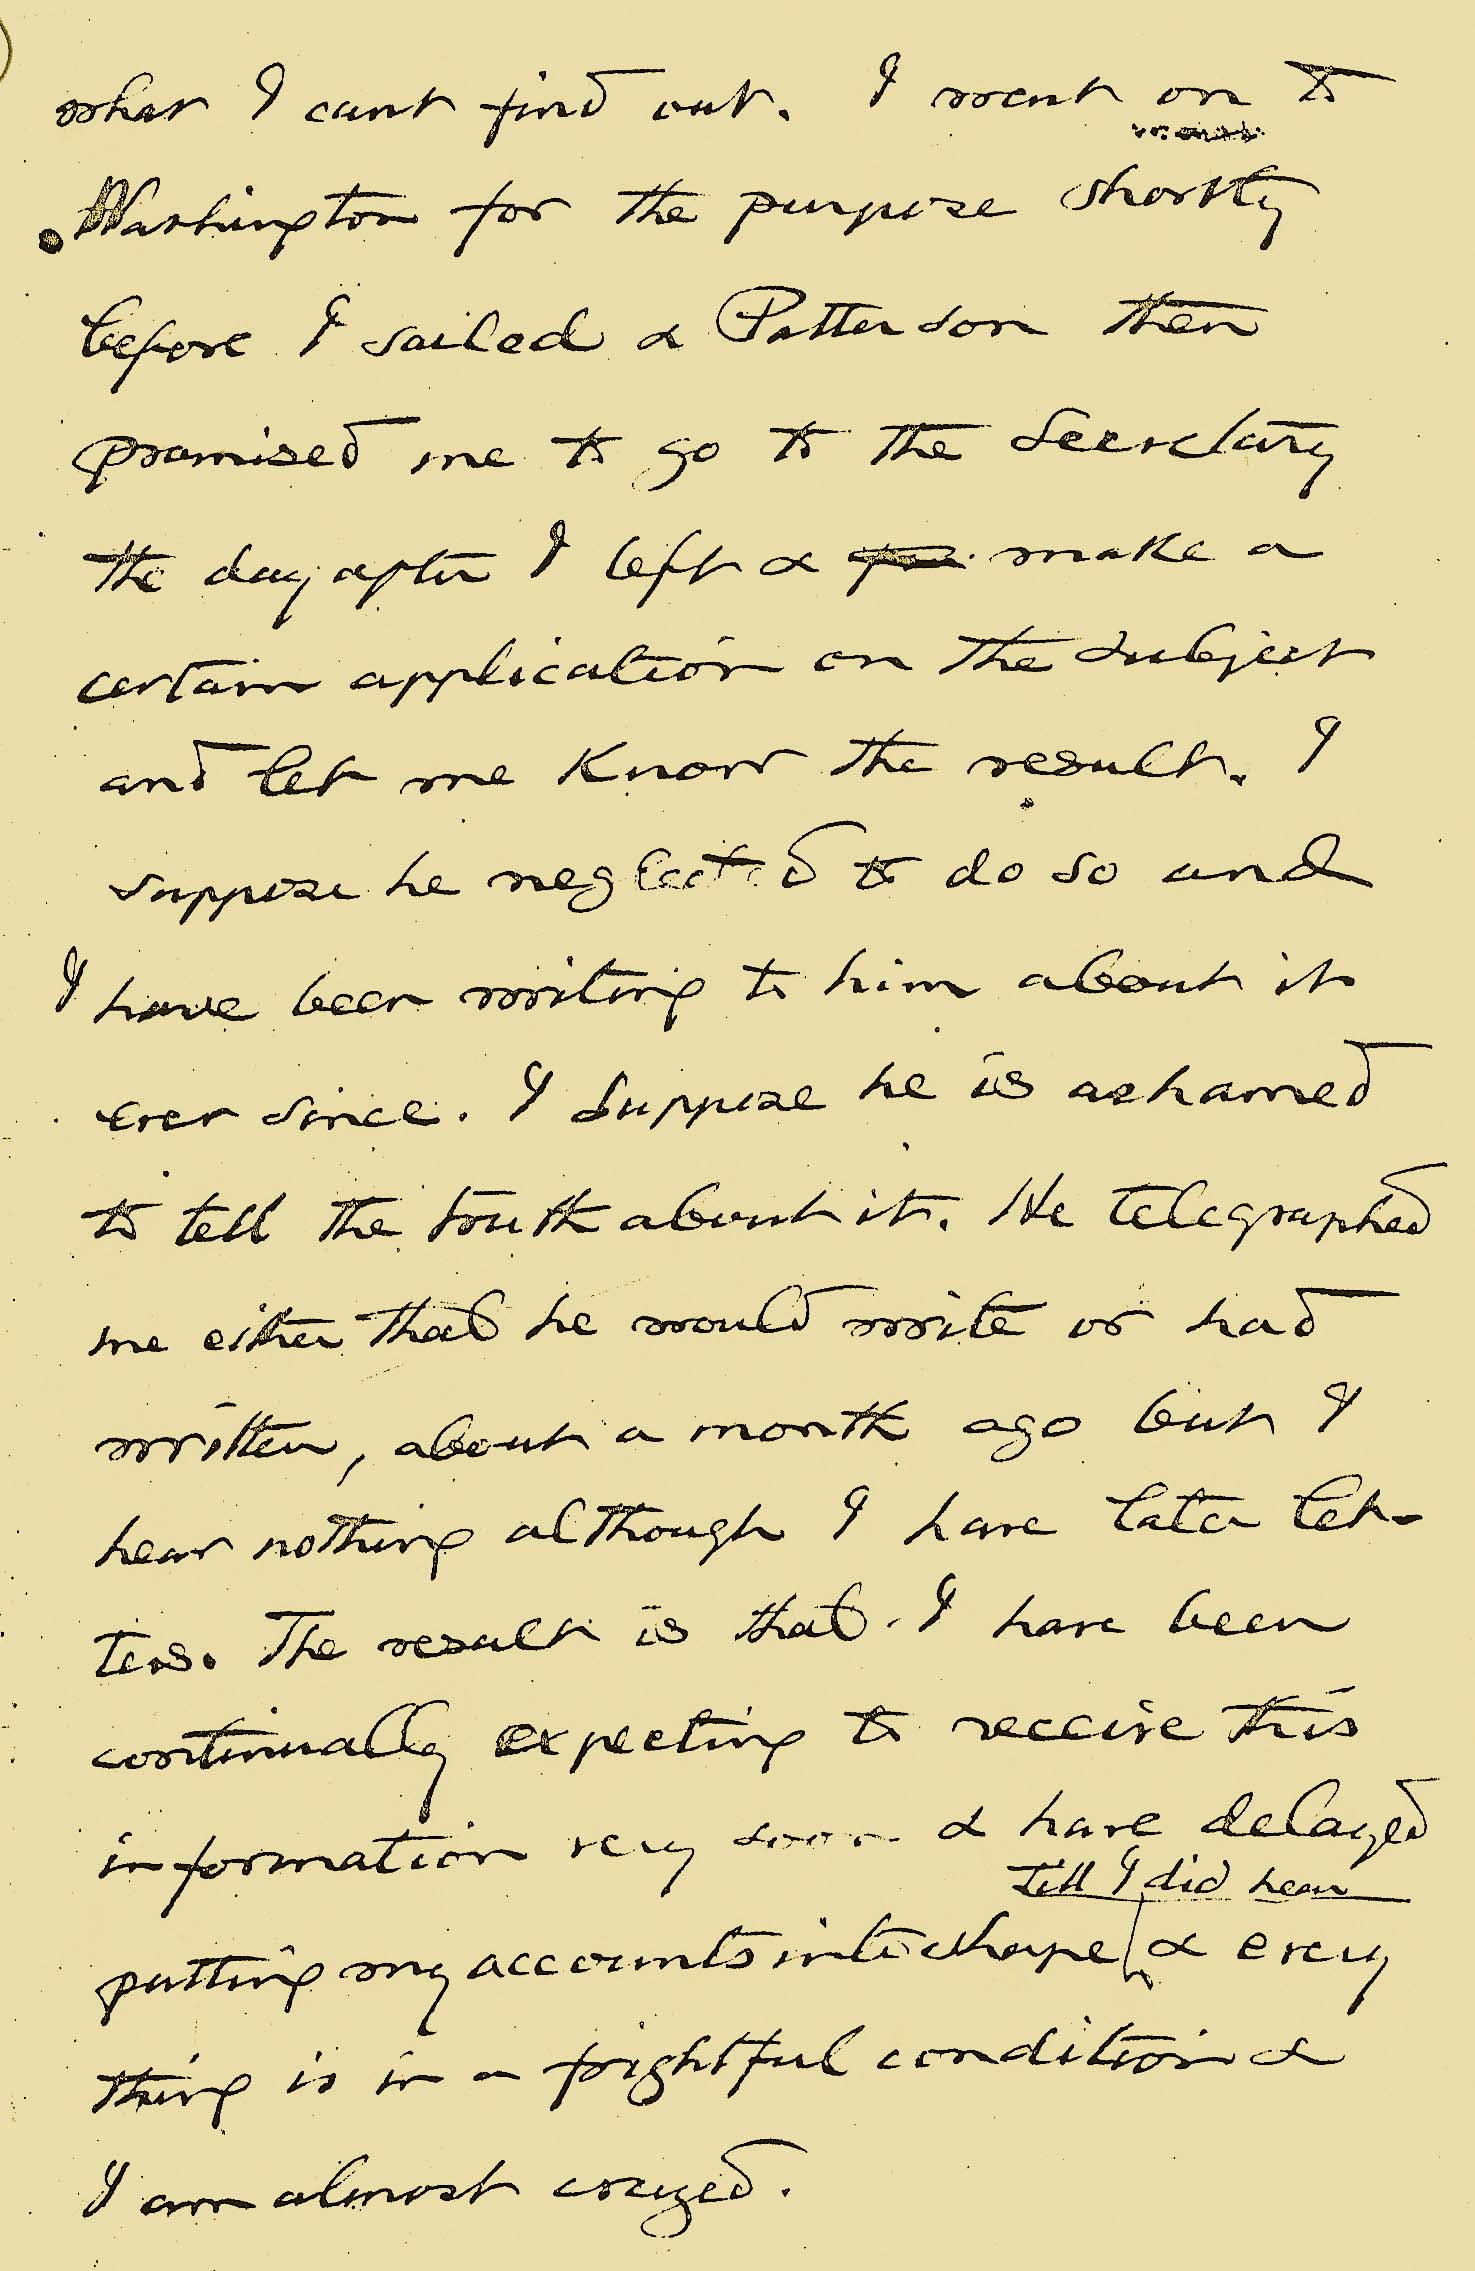 what I cant find out. I went on to
Washington for the purpose shortly
before I sailed & Patterson then
promised me to go to the Secretary
the day after I left & make a
certain application on the subject
and let me know the result. I
suppose he neglected to do so and
I have been writing to him about it
ever since. I suppose he is ashamed
to tell the truth about it. He telegraphed
me either that he would write or had
written, about a month ago but I
hear nothing although I have later let-
ters. The result is that I have been
continually expecting to receive this
information very soon & have delayed
till I did hear
putting my accounts into shape & every
thing is in a frightful condition &
I am almost crazed.